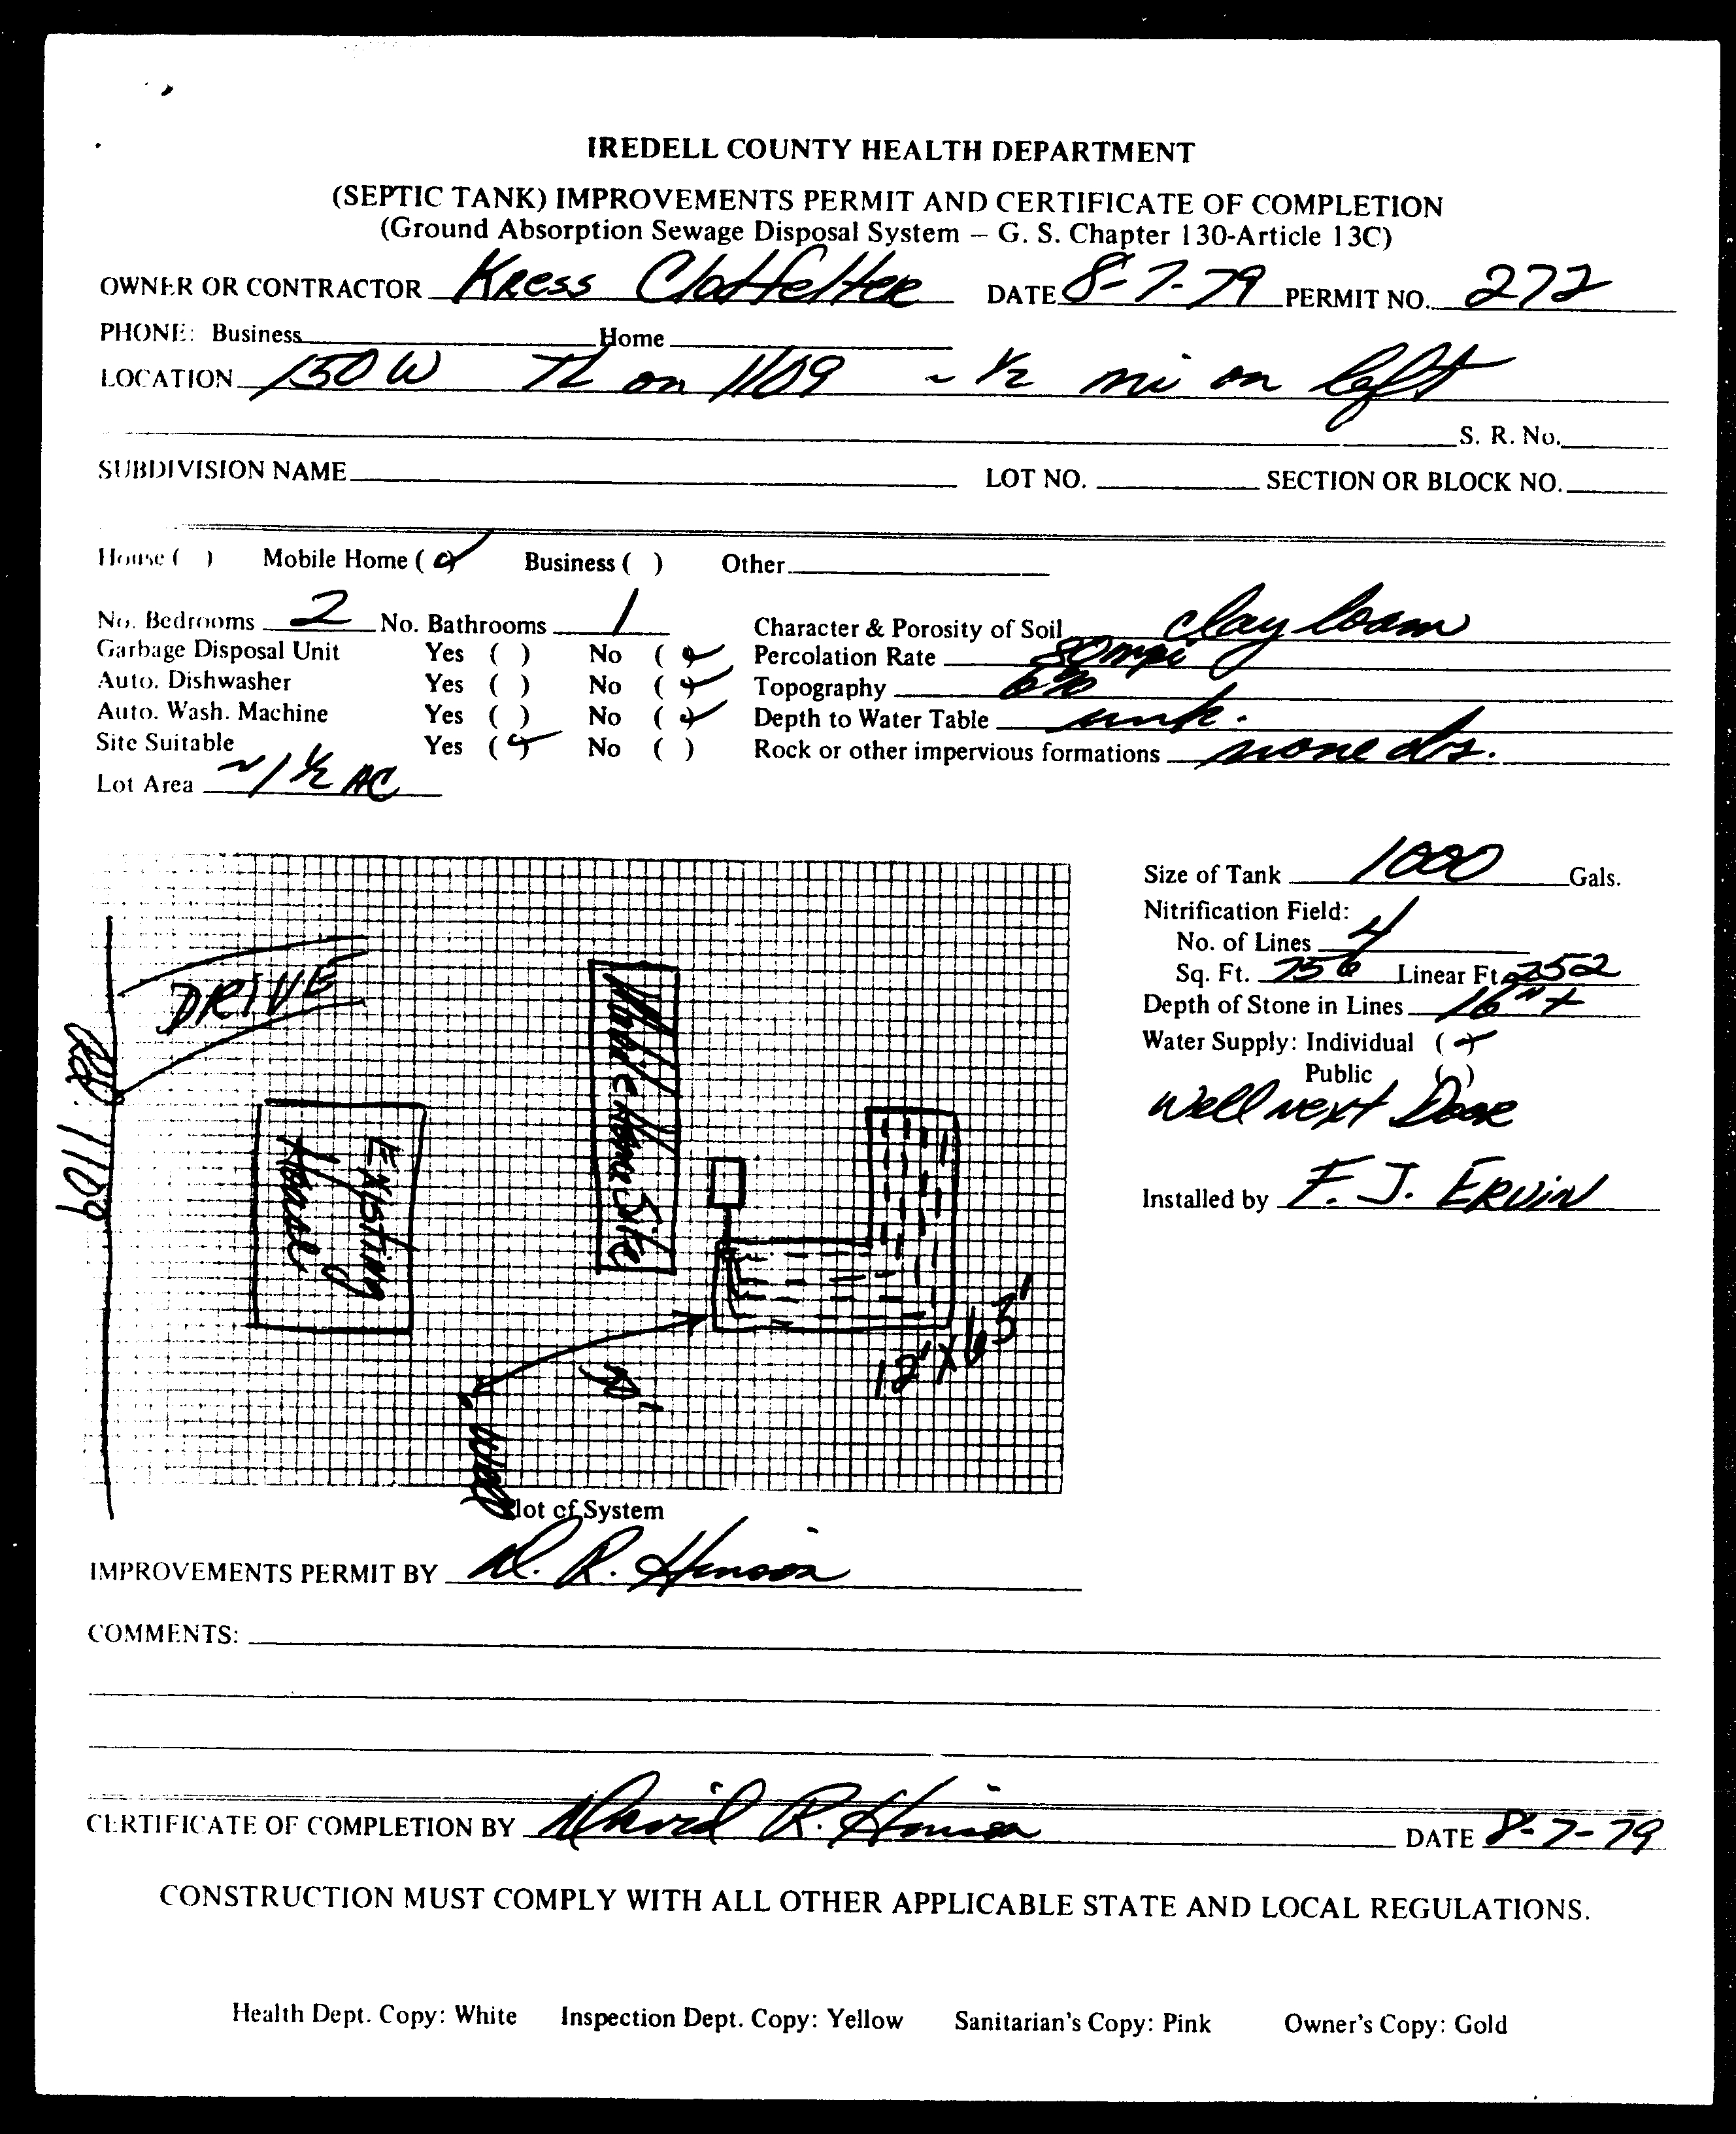 IREDELL COUNTY HEALTH DEPARTMENT
(SEPTIC TANK) IMPROVEMENTS PERMIT AND CERTIFICATE OF COMPLETION
(Ground Absorption Sewage Disposal System – G. S. Chapter 130-Article 13C)
OWNER OR CONTRACTOR Kress Clodfelter DATE 8-7-79 PERMIT NO. 272
PHONE: Business Home
LOCATION 150 W TL on 1109 ~ 1/2 mi on left
S. R. No.
SUBDIVISION NAME LOT NO. SECTION OR BLOCK NO.
House ( ) Mobile Home (✓) Business ( ) Other
No. Bedrooms 2 No. Bathrooms 1 Character & Porosity of Soil clay loam
Garbage Disposal Unit Yes ( ) No (✓) Percolation Rate 80 mpi
Auto. Dishwasher Yes ( ) No (✓) Topography 6%
Auto. Wash. Machine Yes ( ) No (✓) Depth to Water Table unk.
Site Suitable Yes (✓) No ( ) Rock or other impervious formations none obs.
Lot Area ~1 1/2 AC
Size of Tank 1000 Gals.
Nitrification Field:
No. of Lines 4
Sq. Ft. 756 Linear Ft. 252
Depth of Stone in Lines 16" +
Water Supply: Individual (✓)
Public ( )
Well next Door
Installed by F. J. Ervin
DRIVE
Rd. 1109
Existing House
Mobile Home Site
12' X 63'
Well
Plot of System
IMPROVEMENTS PERMIT BY D. R. Hinson
COMMENTS:
CERTIFICATE OF COMPLETION BY David R. Hinson DATE 8-7-79
CONSTRUCTION MUST COMPLY WITH ALL OTHER APPLICABLE STATE AND LOCAL REGULATIONS.
Health Dept. Copy: White Inspection Dept. Copy: Yellow Sanitarian's Copy: Pink Owner's Copy: Gold